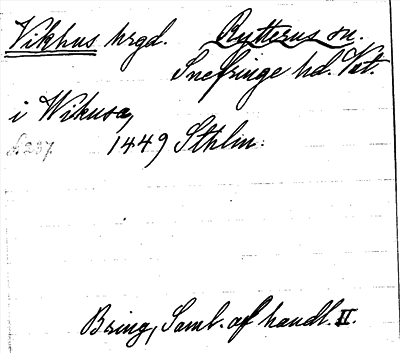 Vikhus hrgd. Rytterns sn.
Snefringe hd. Vst.
i Wikusa,
s. 237. 1449 Sthlm.
Bring, Saml. af handl. II.